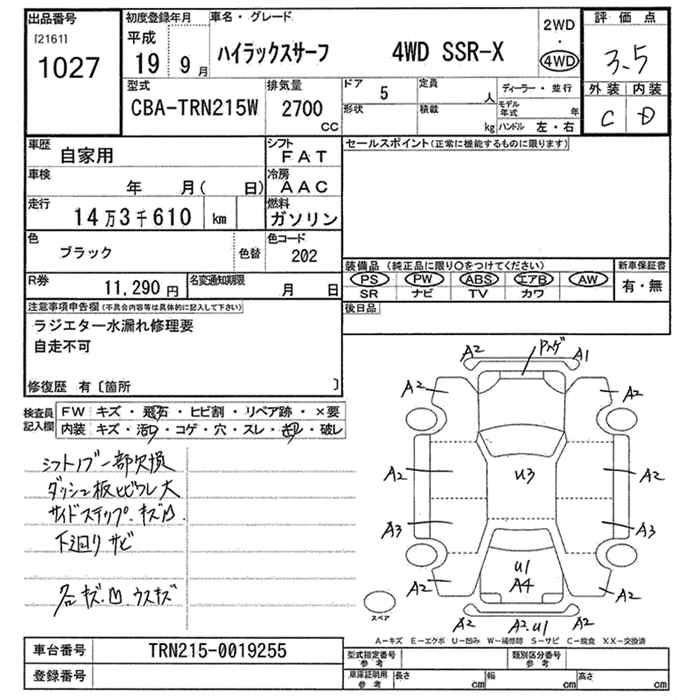 出品番号
[2161]
1027
初度登録年月
平成
19 9月
車名・グレード
ハイラックスサーフ 4WD SSR-X
2WD
・
4WD
評価点
3.5
外装 内装
C D
型式
CBA-TRN215W
排気量
2700
cc
ドア
5
形状
定員
人
積載
kg
ディーラー・並行
モデル年式 年
ハンドル 左・右
車歴
自家用
シフト
FAT
車検
年 月( 日)
冷房
AAC
走行
14万3千610 km
燃料
ガソリン
色
ブラック
色替
色コード
202
R券
11,290円
名変通知期限
月 日
セールスポイント(正常に機能するものに限ります)
装備品 (純正品に限り○をつけてください)
PS PW ABS エアB AW
SR ナビ TV カワ
新車保証書
有・無
後日品
注意事項申告欄(不具合内容等は具体的に記入して下さい)
ラジエター水漏れ修理要
自走不可
修復歴 有〔箇所 〕
検査員
記入欄
FW キズ・飛石・ヒビ割・リペア跡・×要
内装 キズ・汚れ・コゲ・穴・スレ・・破レ
シフトノブ一部欠損
ダッシュ板ヒビワレ大
サイドステップ.キズ凹
下廻りサビ
各キズ.凹.ウスキズ
A2 A1
A2 A2
A2 U3 A2
A3 A3
U1
A4
A2 A2
A2.U1
スペア
A-キズ E-エクボ U-凹み W-補修跡 S-サビ C-腐食 XX-交換済
車台番号
TRN215-0019255
登録番号
型式指定番号
参考
類別区分番号
参考
車庫証明用
参考
長さ cm
幅 cm
高さ cm